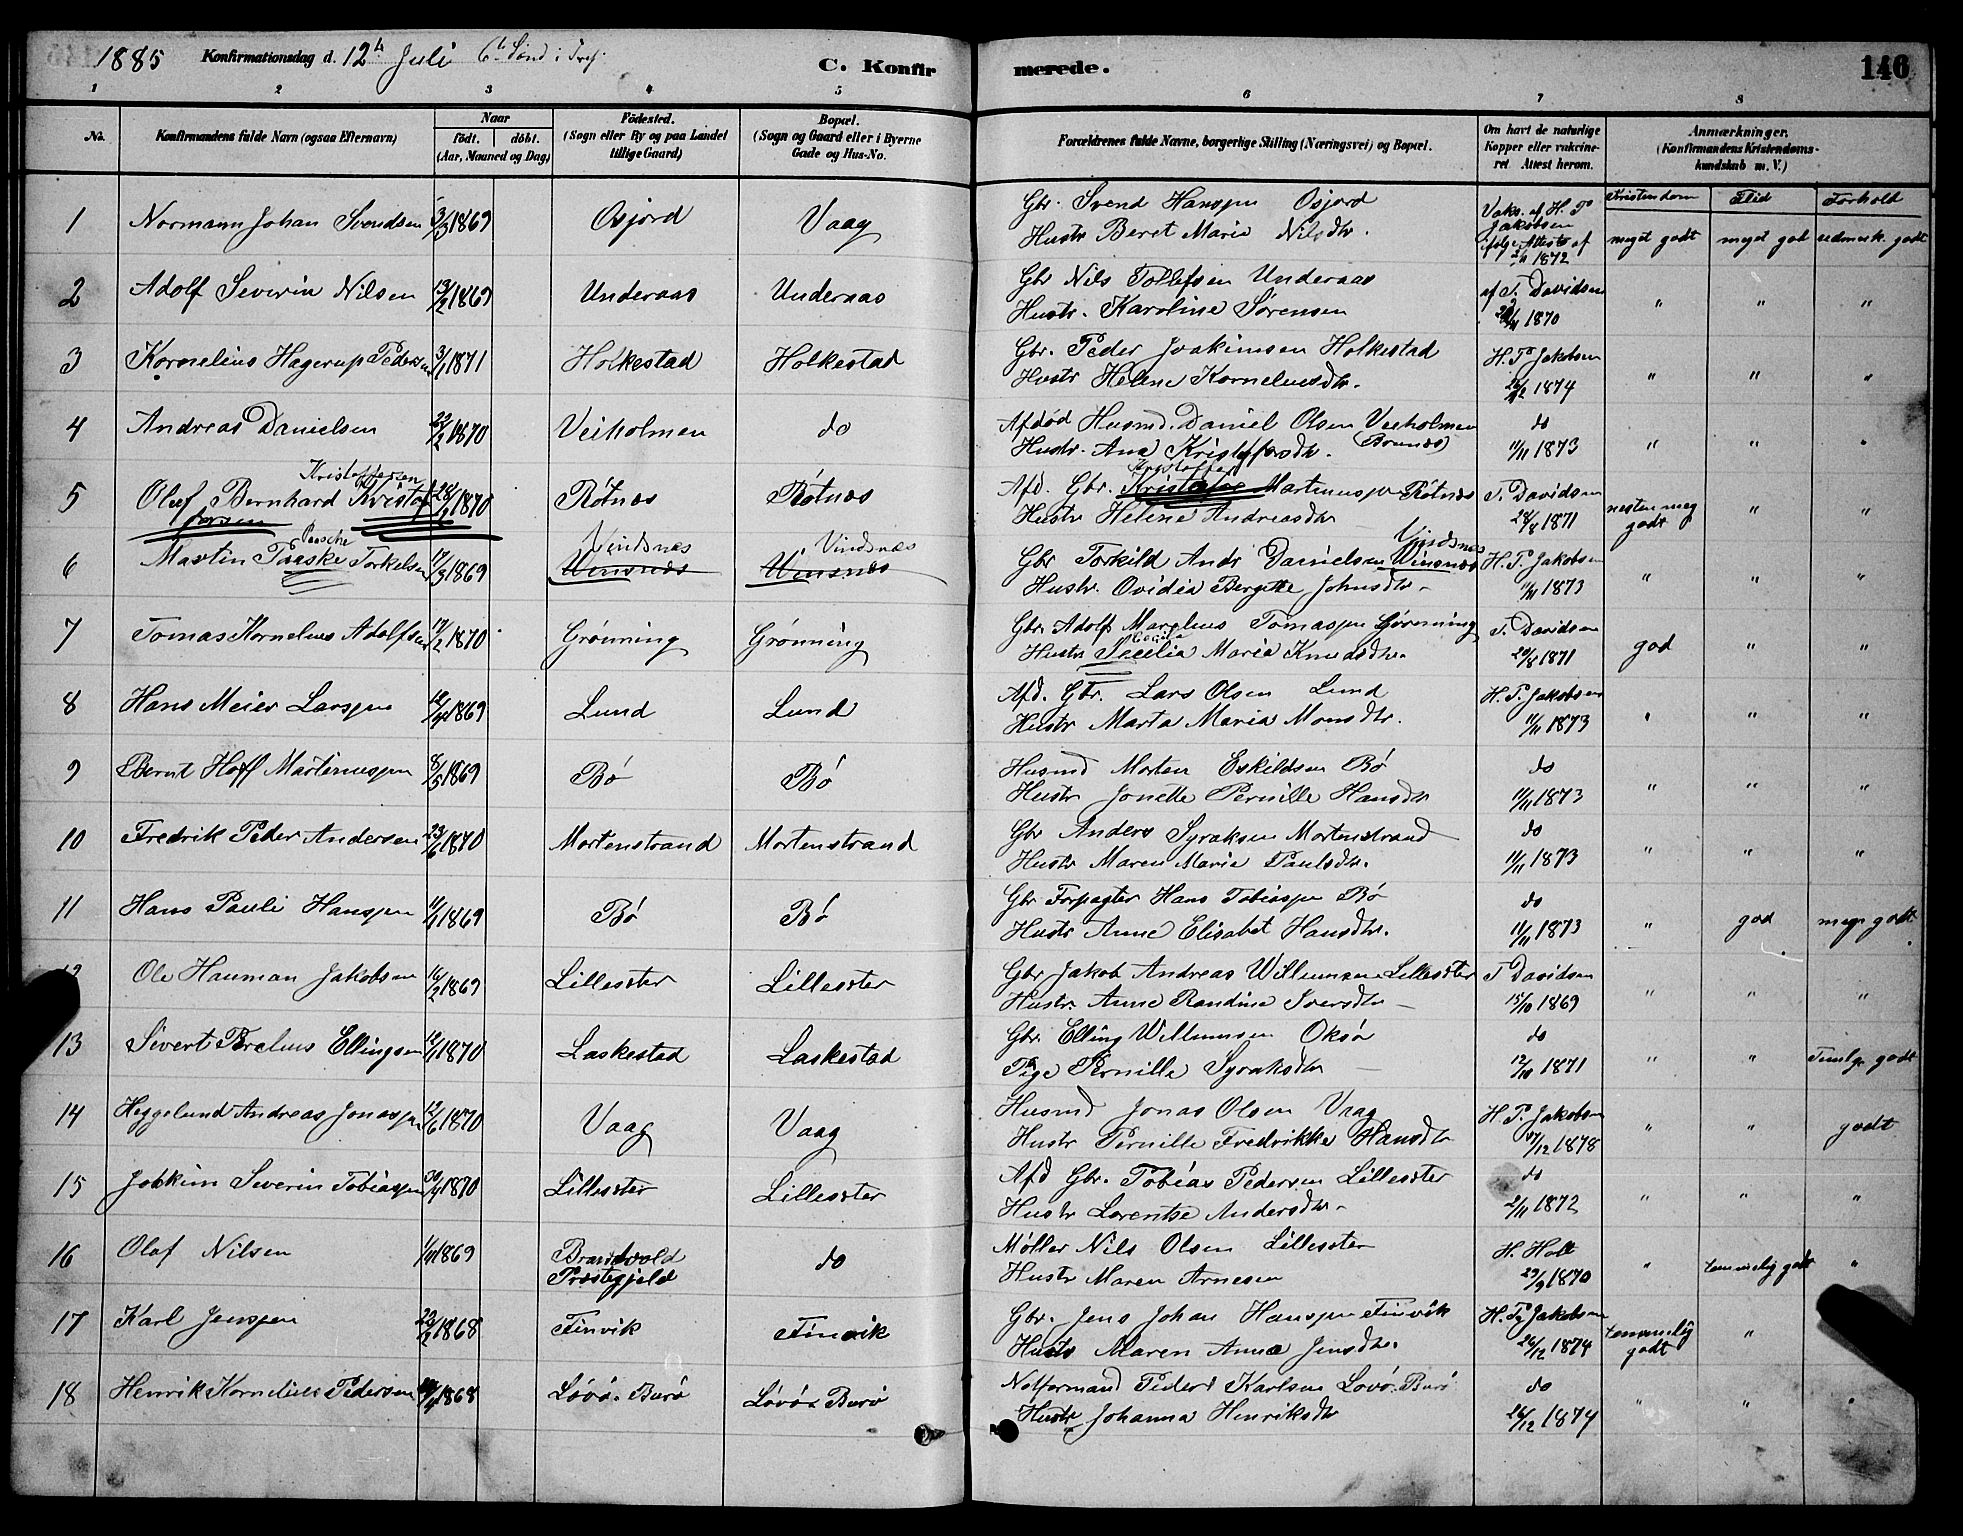 1885 Konfirmationsdag d. 12te Juli 6te Sønd. i Tref.
C. Konfirmerede.
146
1 2 3 4 5 6 7 8
No.
Konfirmandens fulde Navn (ogsaa Efternavn)
Naar
født. døbt.
(Aar, Maaned og Dag)
Fødested.
(Sogn eller By og paa Landet
tillige Gaard)
Bopæl.
(Sogn og Gaard eller i Byerne
Gade og Hus-No.
Forældrenes fulde Navne, borgerlige Stilling (Næringsvei) og Bopæl.
Om havt de naturlige
Kopper eller vakcine-
ret Attest herom.
Anmærkninger.
(Konfirmandens Kristendoms-
kundskab m. V.)
Kristendom Flid Forhold
1 Normann Johan Svendsen 3/3 1869 Osjord Vaag Gbr. Svend Hanssen Osjord Vaks. af H. P.
Jakobsen
Hustr Beret Maria Nilsdtr. ifølge Attest af meget godt meget god udmærk. godt
2/11 1872
2 Adolf Severin Nilsen 13/2 1869 Underaas Underaas Gbr Nils Tollefsen Underaas af T. Davidsen " " "
Hustr. Karoline Sørensen 1870
3 Kornelius Hagerup Pedersen 3/1 1871 Holkestad Holkestad Gbr. Peder Joakimsen Holkestad H. P. Jakobsen
Hustr Helene Korneliusdtr. 26/12 1874 " " "
4 Andreas Danielsen 22/2 1870 Veiholmen do Afdød Husmd. Daniel Olsen Veeholmen do
Hustr. Ana Kristofersdtr. (Brunæs) 11/11 1873 " " "
Kristoffersen Kristoffer
5 Oluf Bernhard Kristof- 28/1 1870 Røtnæs Røtnæs Afd. Gbr. Kristofer Martinussen Røtnæs T. Davidsen nesten meg " "
fersen Hustr Helene Andreasdtr 28/8 1871 godt
Paasche Vindsnæs Vindsnæs Vindsnæs
6 Martin Paaske Torkelsen 17/3 1869 Winsnæs Winsnæs Gbr Torkild Andr Danielsen Winsnæs H. P. Jakobsen
Hustr. Ovidia Bergitte Johnsdtr - 11/11 1873 " " "
7 Tomas Kornelius Adolfsen 17/2 1870 Grønning Grønning Gbr. Adolf Marelius Tomassen Grønning T. Davidsen
Cecilia
Hustr Secilia Maria Knudsdtr. 29/8 1871 god " "
8 Hans Meier Larssen 12/4 1869 Lund Lund Afd. Gbr. Lars Olsen Lund H. P. Jakobsen
Hustr Marta Maria Monsdtr. 11/11 1873 " " "
9 Bernt Hoff Martinussen 8/5 1869 Bø Bø Husmd Morten Eskildsen Bø do
Hustr Jonette Pernille Hansdtr 11/11 1873 " " "
10 Fredrik Peder Andersen 23/6 1870 Mortenstrand Mortenstrand Gbr Anders Syraksen Mortenstrand do
Hustr Maren Maria Paulsdtr. 11/11 1873 " " "
11 Hans Pauli Hanssen 11/1 1869 Bø Bø Gbr Forpagter Hans Tobiassen Bø do
Hustr Anne Elisabet Hansdtr. 11/11 1873 " god meg. godt
12 Ole Hauman Jakobsen 16/2 1869 Lilleøster Lilleøster Gbr Jakob Andreas Willumsen Lilleøster T Davidsen
Hustr. Anne Randine Iversdtr - 15/10 1869 " " "
13 Sivert Parelius Ellingsen 12/1 1870 Laskestad Laskestad Gbr Elling Willumsen Oksø do
Pige Pernille Syraksdtr - 12/10 1871 " " Temlg. godt
14 Heggelund Andreas Jonassen 12/6 1870 Vaag Vaag Husmd Jonas Olsen Vaag H. P. Jakobsen
Hustr Pernille Fredrikke Hansdtr 1878 " " godt
15 Joakim Severin Tobiassen 30/4 1870 Lilleøster Lilleøster Afd Gbr. Tobias Pedersen Lilleøster do
Hustr Lorentse Andersdtr - 2/11 1872 " " "
16 Olaf Nilsen 1869 Brandvold do Møller Nils Olsen Lilleøster H. Holt
Præstegjeld Hustr Maren Arnesen 29/9 1870 " temmelig godt "
17 Karl Jenssen 22/2 1868 Finvik Finvik Gbr. Jens Johan Hanssen Finvik H. P. Jakobsen temmelig "
Hustr Maren Anna Jensdtr. 26/12 1874 godt
18 Henrik Kornelius Pedersen 1868 Løvø. Burø Løvø. Burø Notformand Peder Karlsen Løvø. Burø do
Hustr Johanna Henriksdtr 26/12 1874 " " "